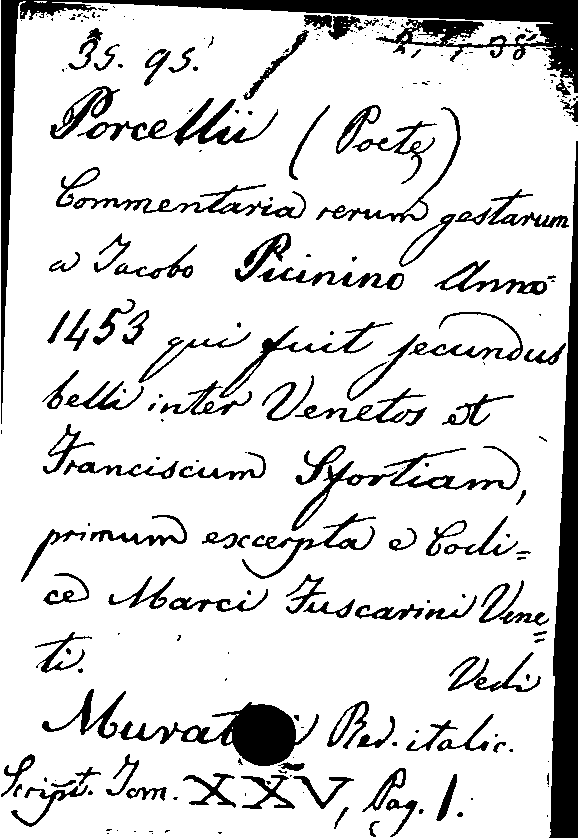 35. 95.
Porcellii (Poetę)
Commentaria rerum gestarum
a Jacobo Picinino Anno
1453 qui fuit secundus
belli inter Venetos et
Franciscum Sfortiam,
primum excerpta e Codi=
ce Marci Fuscarini Vene=
ti. Vedi
Murat i Rer. italic.
Script. Tom. XXV, Pag. 1.